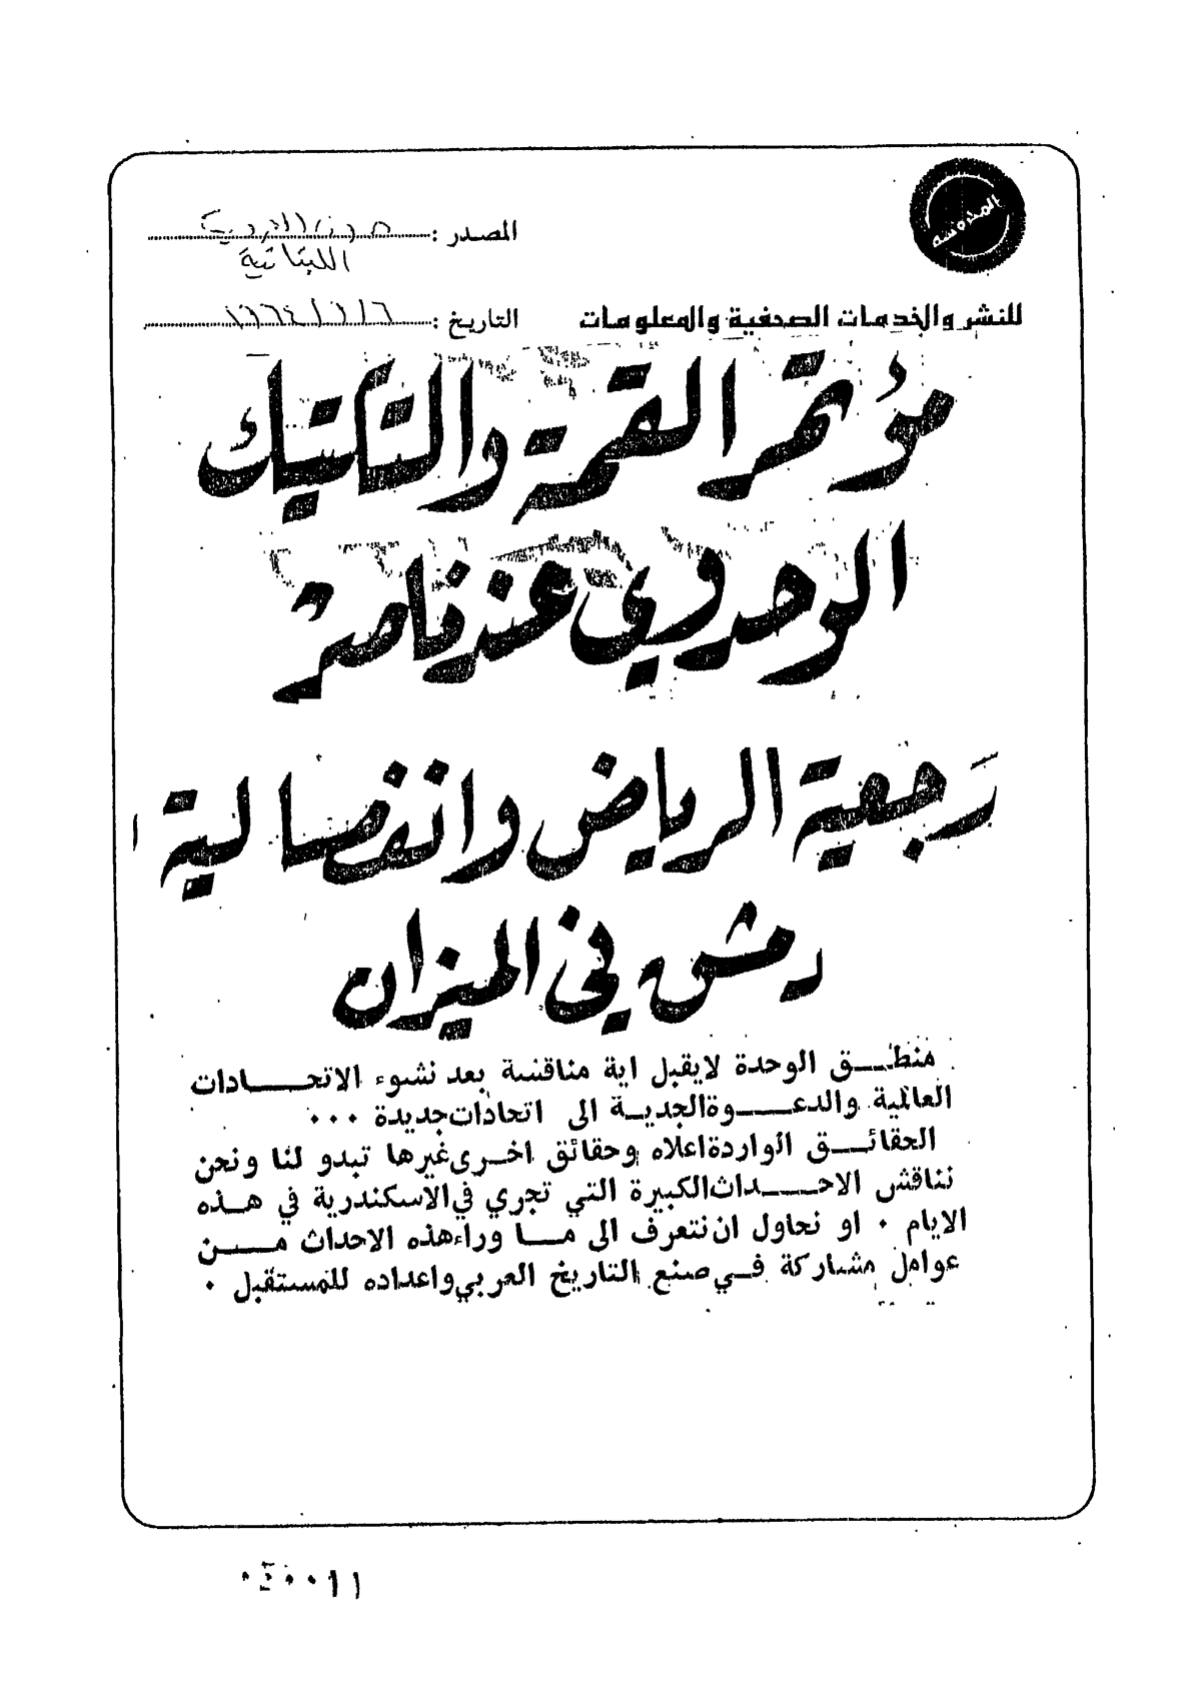 المحروسة
المصدر :
اللبنانية
للنشر والخدمات الصحفية والمعلومات
التاريخ : ٦/ ٩/ ١٩٦٤
مؤتمر القمة والتكتيك
الوحدوي عند ناصر
رجعية الرياض وانفصالية
دمشق في الميزان
منطـــق الوحدة لايقبل اية مناقشة بعد نشوء الاتحـــــادات
العالمية والدعـــــوة الجديـة الى اتحادات جديدة ٠٠٠
الحقائـــق الواردة اعلاه وحقائق اخرى غيرها تبدو لنا ونحن
نناقش الاحــــداث الكبيرة التي تجري في الاسكندرية في هـــذه
الايام ٠ او نحاول ان نتعرف الى مـــا وراء هذه الاحداث مـــــن
عوامل مشاركة فــي صنع التاريخ العربي واعداده للمستقبل ٠